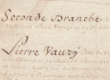 Seconde Branche
Pierre Vaury